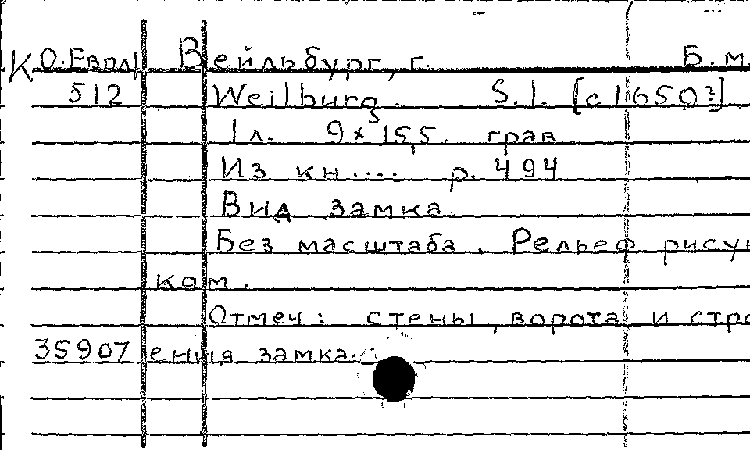 К О. Евпл Вейльбург, г. Б. м.
512 Weilburg. S. l. [c 1650?]
1 л. 9 x 15,5. грав
Из кн.... p. 494
Вид замка.
Без масштаба. Рельеф рисун
ком.
Отмеч: стены, ворота и стро
35907 ения замка.